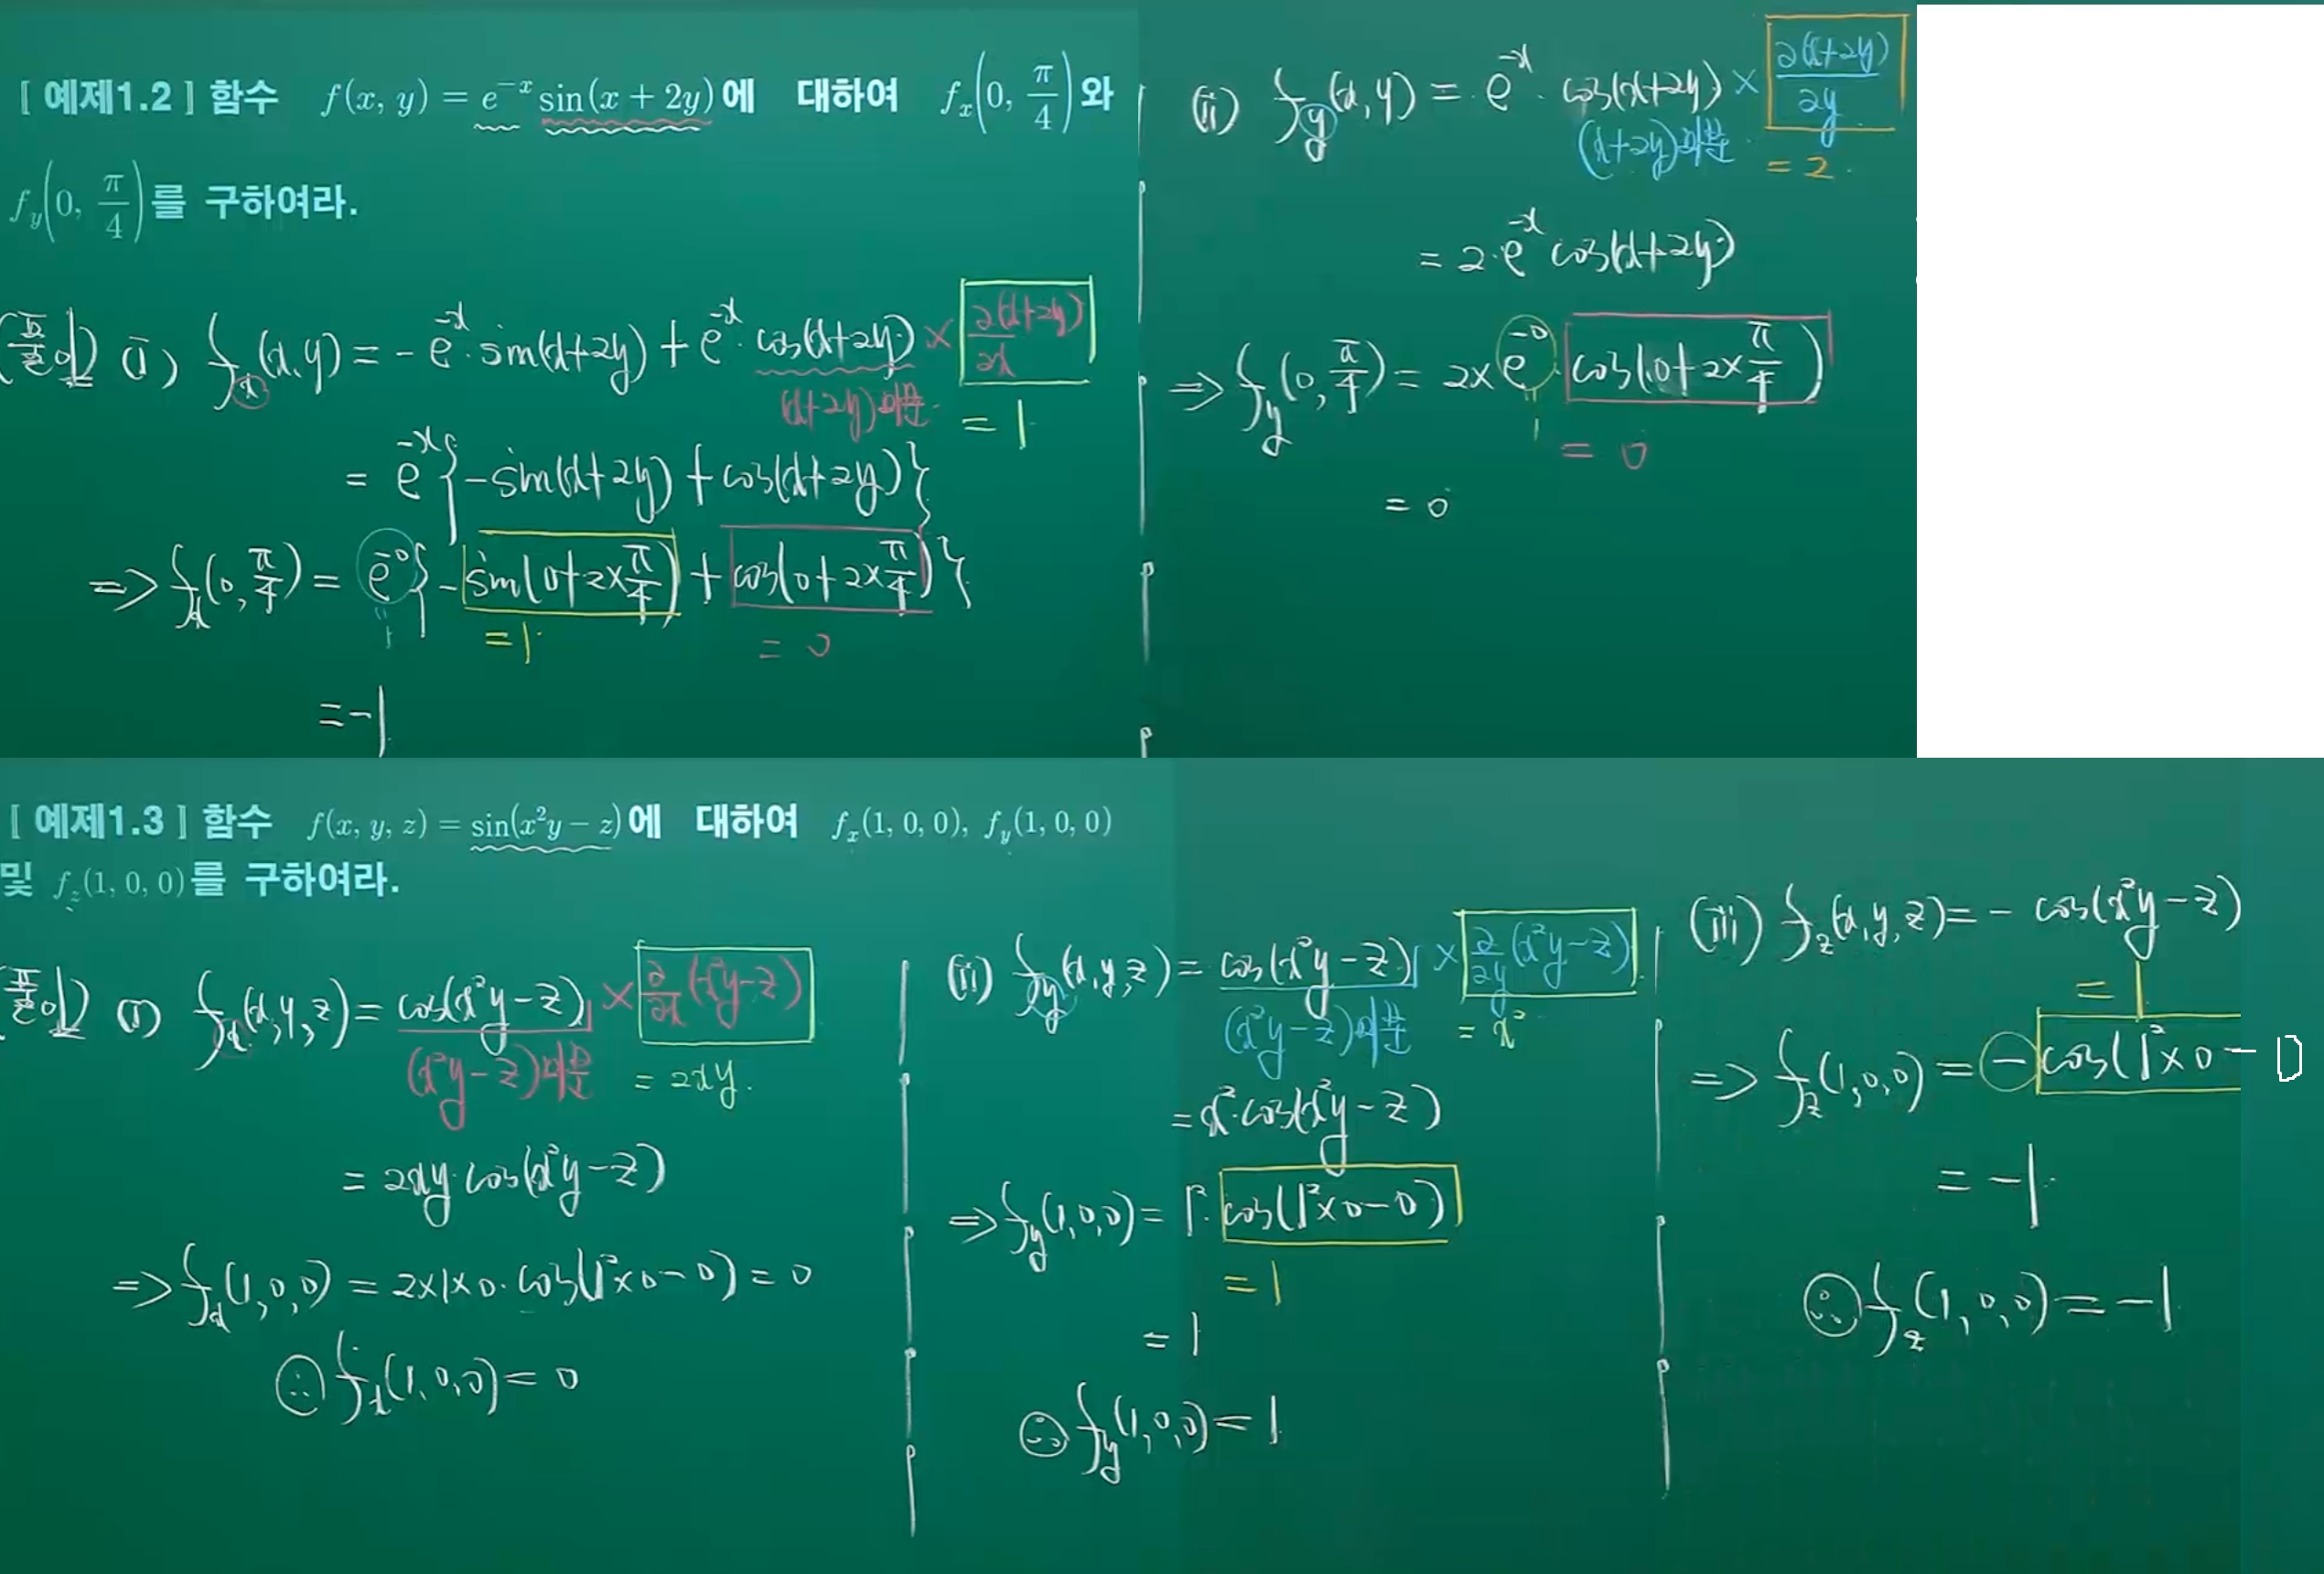 [ 예제1.2 ] 함수 f(x, y) = e^{-x} sin(x + 2y)에 대하여 f_x(0, π/4)와
f_y(0, π/4)를 구하여라.
(풀이) (i) f_x(x,y) = -e^{-x}·sin(x+2y) + e^{-x}·cos(x+2y) × ∂(x+2y)/∂x
(x+2y)미분 = 1
= e^{-x}{-sin(x+2y) + cos(x+2y)}
=> f_x(0, π/4) = e^{-0}{-sin(0+2×π/4) + cos(0+2×π/4)}
1 =1 = 0
= -1
(ii) f_y(x,y) = e^{-x}·cos(x+2y) × ∂(x+2y)/∂y
(x+2y)미분 = 2
= 2·e^{-x} cos(x+2y)
=> f_y(0, π/4) = 2×e^{-0}·cos(0+2×π/4)
1 = 0
= 0
[ 예제1.3 ] 함수 f(x, y, z) = sin(x²y − z)에 대하여 f_x(1, 0, 0), f_y(1, 0, 0)
및 f_z(1, 0, 0)를 구하여라.
(풀이) (i) f_x(x,y,z) = cos(x²y-z) × ∂/∂x(x²y-z)
(x²y-z)미분 = 2xy
= 2xy·cos(x²y-z)
=> f_x(1,0,0) = 2×1×0·cos(1²×0-0) = 0
∴ f_x(1,0,0) = 0
(ii) f_y(x,y,z) = cos(x²y-z) × ∂/∂y(x²y-z)
(x²y-z)미분 = x²
= x²·cos(x²y-z)
=> f_y(1,0,0) = 1²·cos(1²×0-0)
= 1
= 1
∴ f_y(1,0,0) = 1
(iii) f_z(x,y,z) = - cos(x²y-z)
= 1
=> f_z(1,0,0) = -cos(1²×0- 0
= -1
∴ f_z(1,0,0) = -1